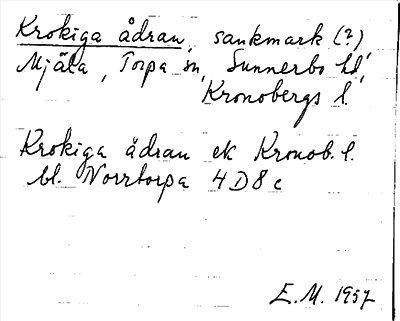 Krokiga ådran, sankmark (?),
Mjäla, Torpa sn, Sunnerbo hd,
Kronobergs l.
Krokiga ådran ek Kronob. l.
bl. Norrtorpa 4D8c
E.M. 1957